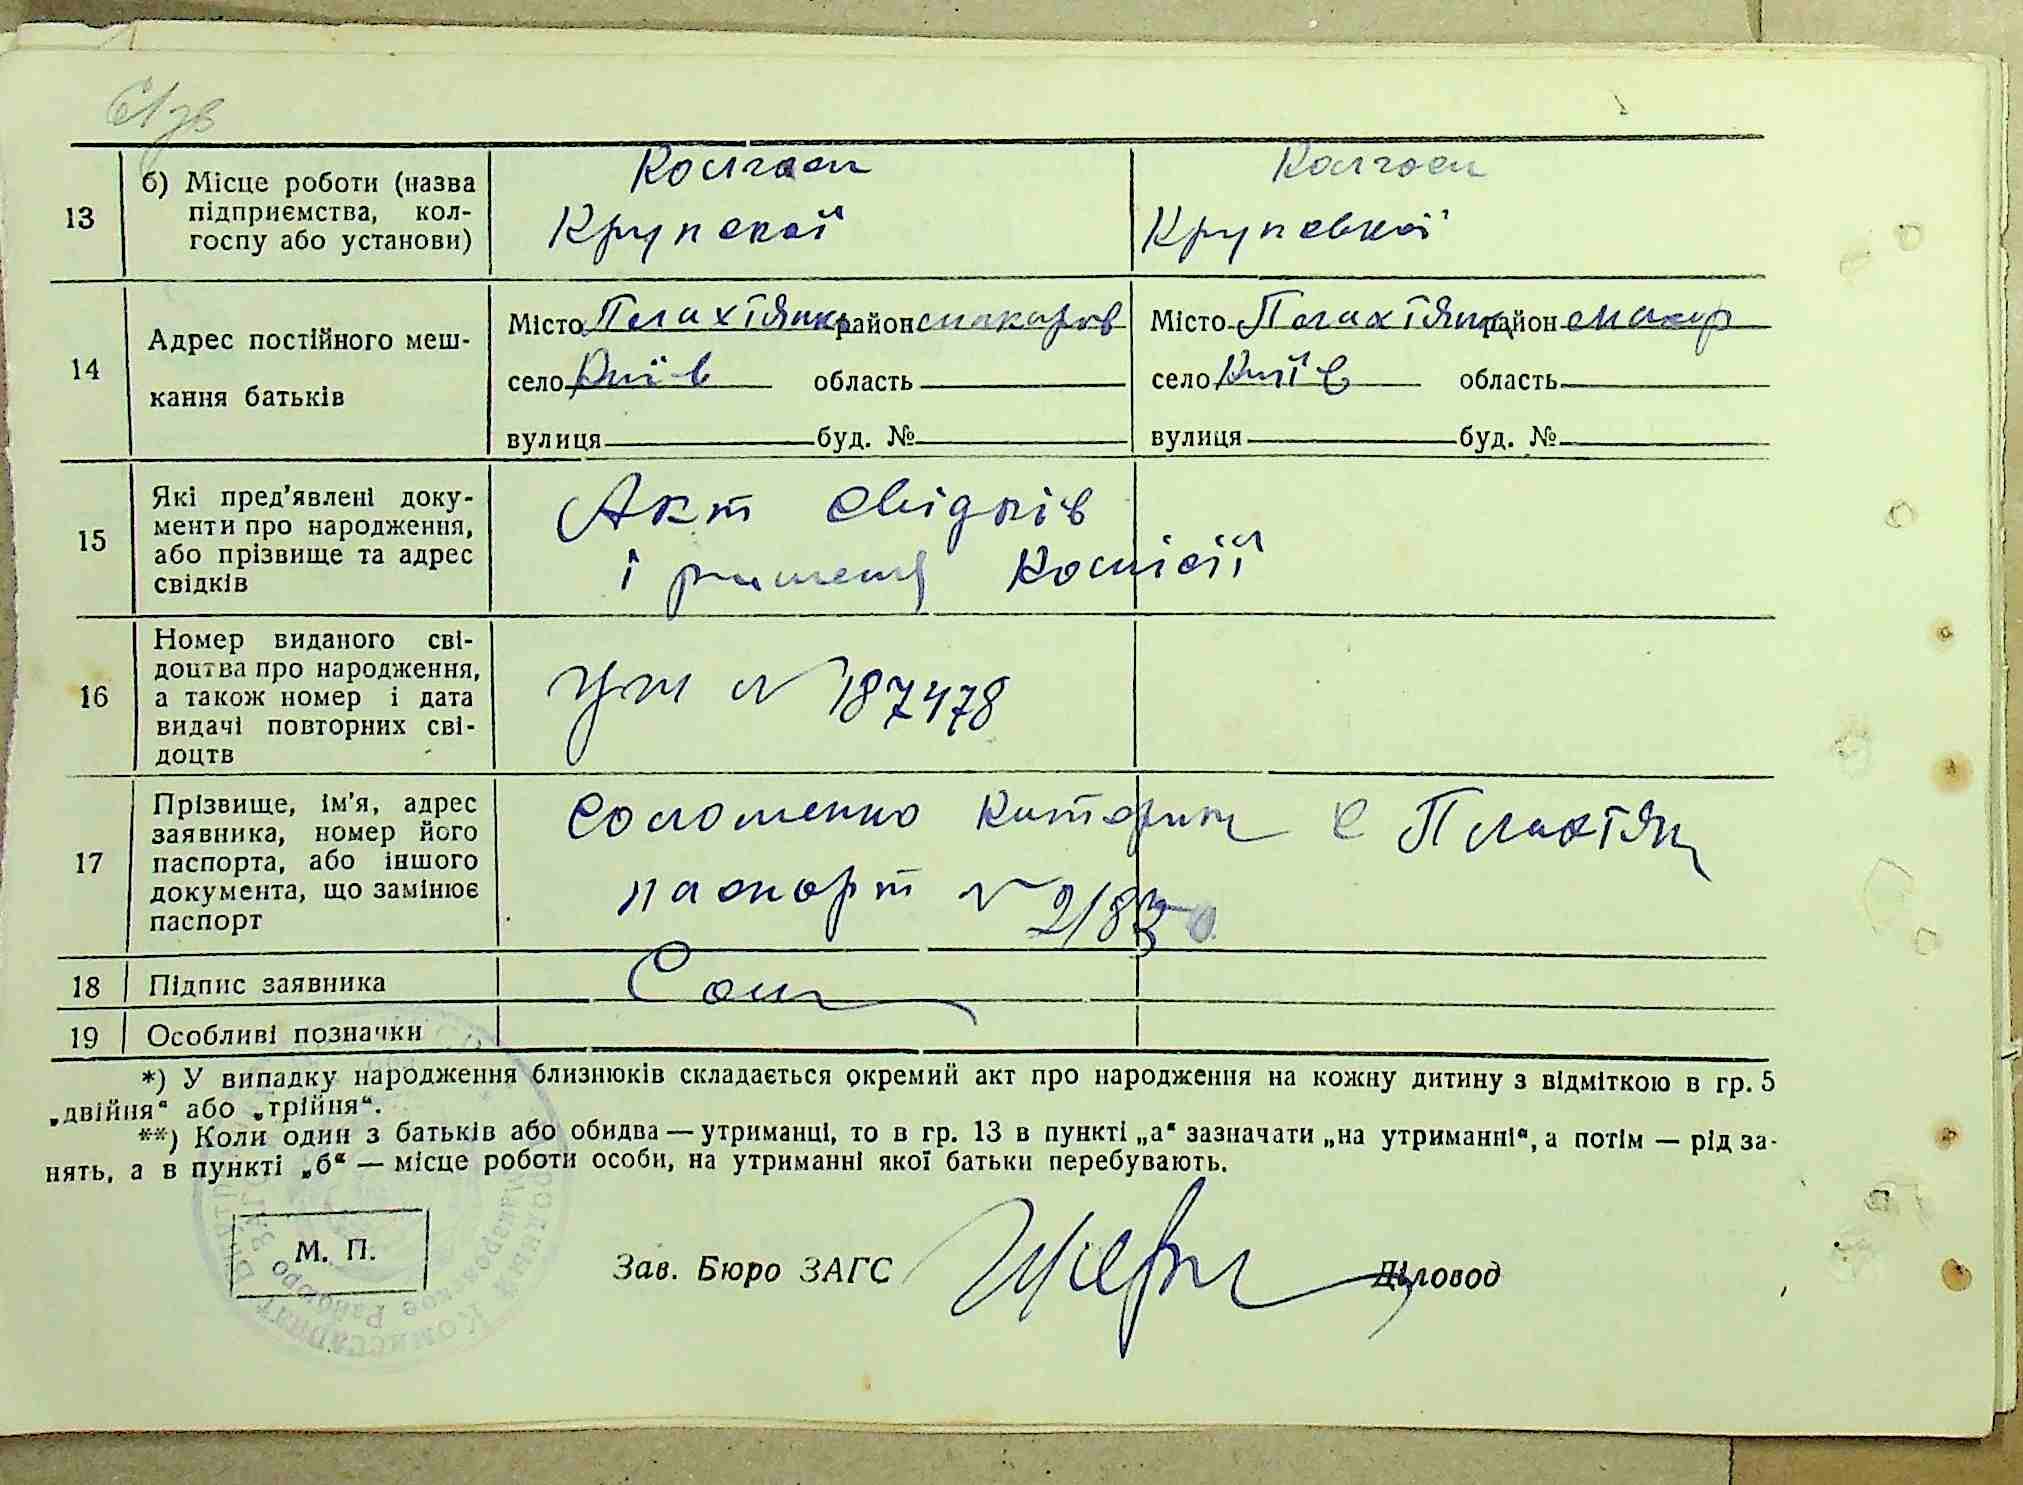 61 зв
13 б) Місце роботи (назва підприємства, кол-госпу або установи)
Колгосп Колгосп
Крупскої Крупської
14 Адрес постійного меш-
кання батьків
Місто Плахтянка район Макаров Місто Плахтянка район Макар
село Київ область село Київ область
вулиця буд. № вулиця буд. №
15 Які пред'явлені доку-
менти про народження,
або прізвище та адрес
свідків
Акт свідків
і рішення Комісії
16 Номер виданого сві-
доцтва про народження,
а також номер і дата
видачі повторних сві-
доцтв
№ 187478
17 Прізвище, ім'я, адрес
заявника, номер його
паспорта, або іншого
документа, що замінює
паспорт
Соломенко Катерин с Плахтян
паспорт №
18 Підпис заявника
Сол
19 Особливі позначки
*) У випадку народження близнюків складається окремий акт про народження на кожну дитину з відміткою в гр. 5
„двійня“ або „трійня“.
**) Коли один з батьків або обидва — утриманці, то в гр. 13 в пункті „а“ зазначати „на утриманні“, а потім — рід за-
нять, а в пункті „б“ — місце роботи особи, на утриманні якої батьки перебувають.
М. П.
Зав. Бюро ЗАГС Діловод
Комиссариат
Макаровское Райбюро ЗАГС